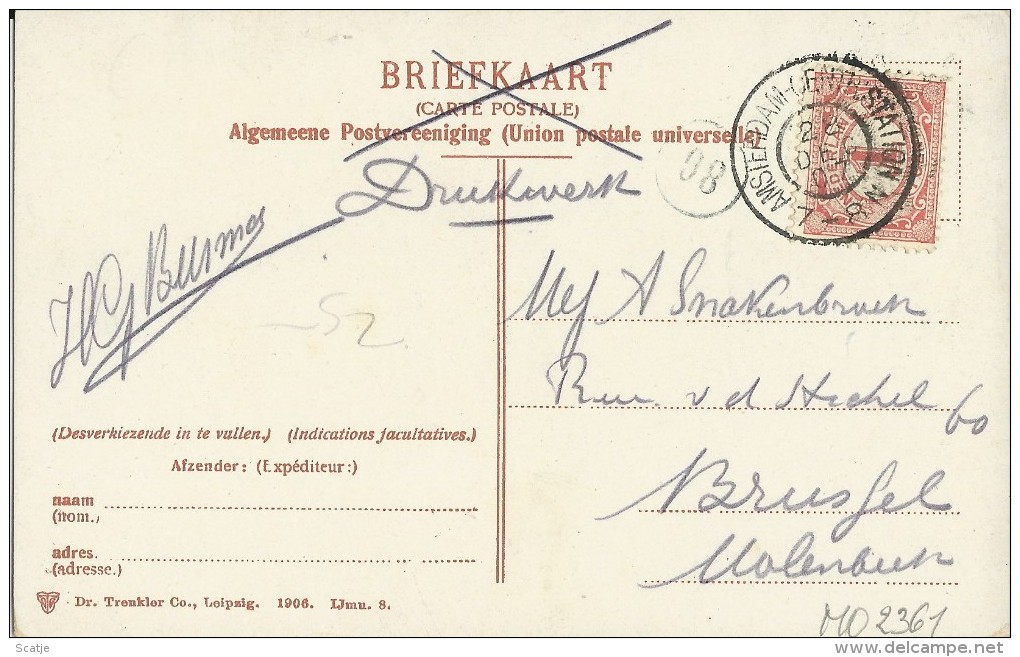 BRIEFKAART
(CARTE POSTALE)
Algemeene Postvereeniging (Union postale universelle)
AMSTERDAM-CENT-STATION
08
Drukwerk
HG Buismes
52
Mej A Snakenbroek
Rue v d Stichel 60
Brussel
Molenbeek
(Desverkiezende in te vullen.) (Indications facultatives.)
Afzender: (Expéditeur:)
naam
(nom.)
adres.
(adresse.)
Dr. Trenkler Co., Leipzig. 1906. IJmu. 8.
MO 2361
Scatje